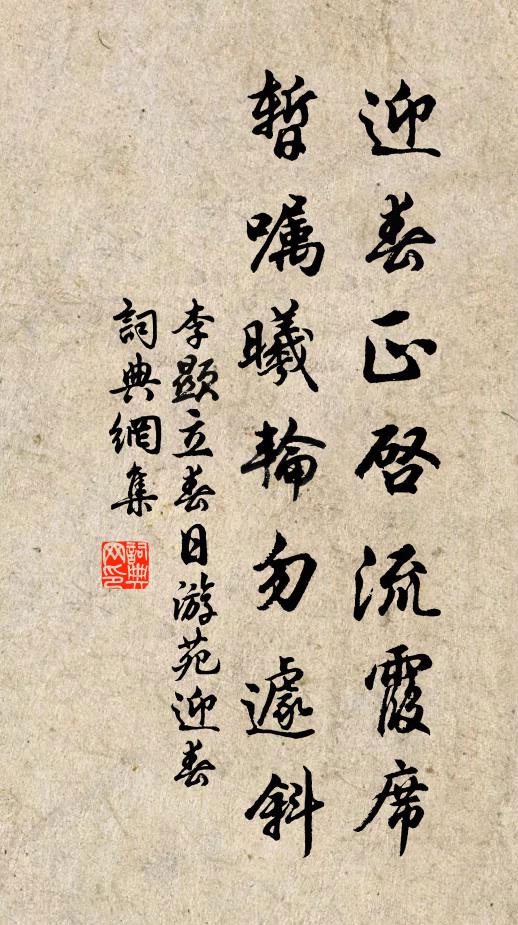 迎春正啓流霞席
暫嘱曦輪勿遽斜
李顯立春日游苑迎春
詞典網集
詞典網印